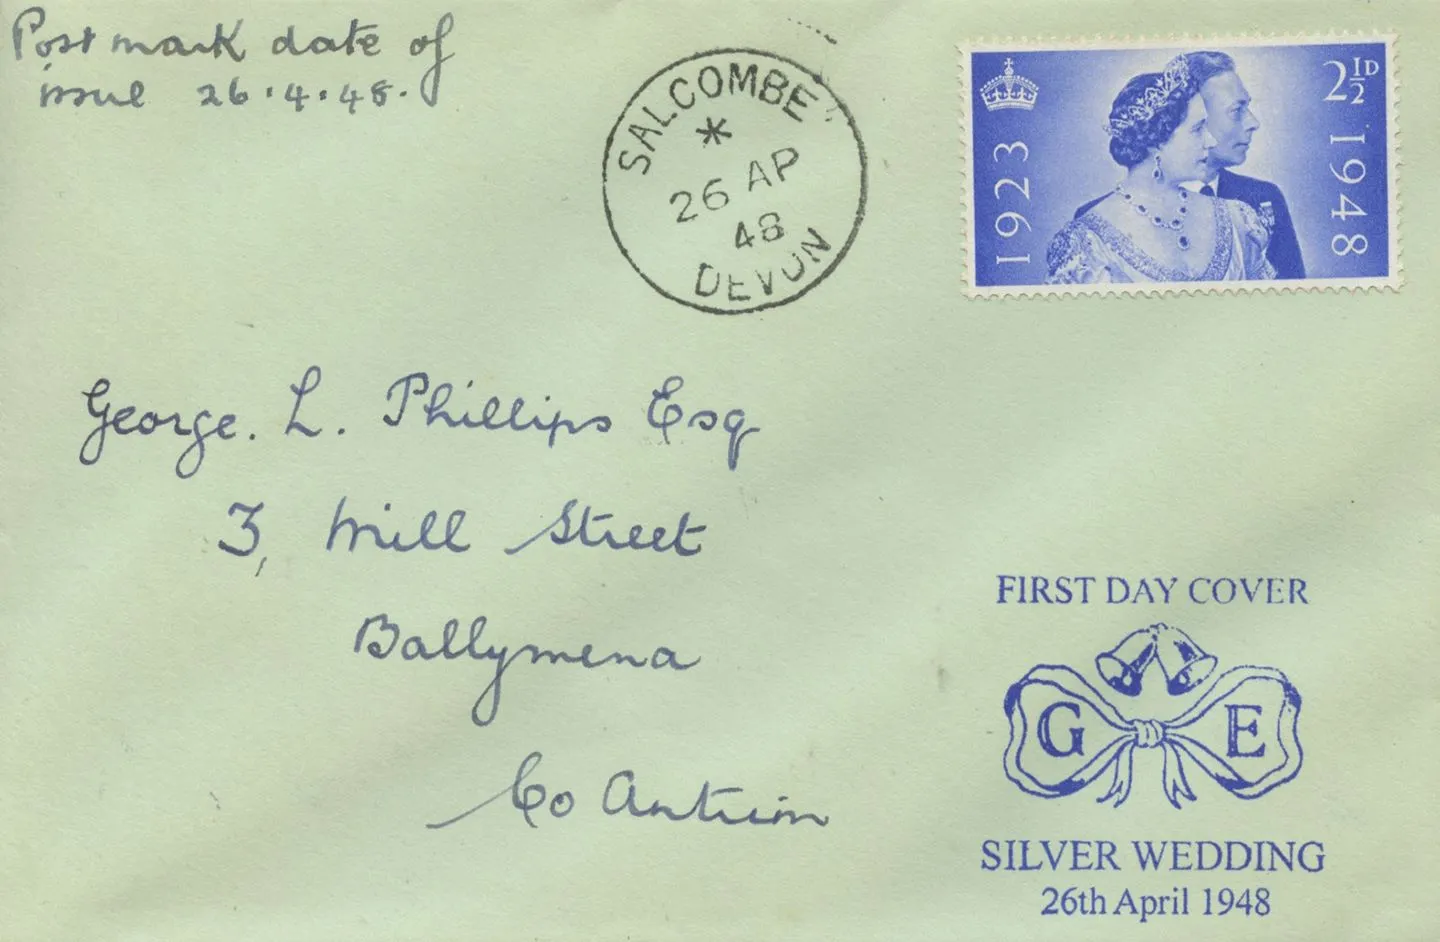 Post mark date of
issue 26.4.48.
SALCOMBE
26 AP
48
DEVON
1923
2½D
1948
George. L. Phillips Esq
3, Mill Street
Ballymena
Co Antrim
FIRST DAY COVER
G E
SILVER WEDDING
26th April 1948